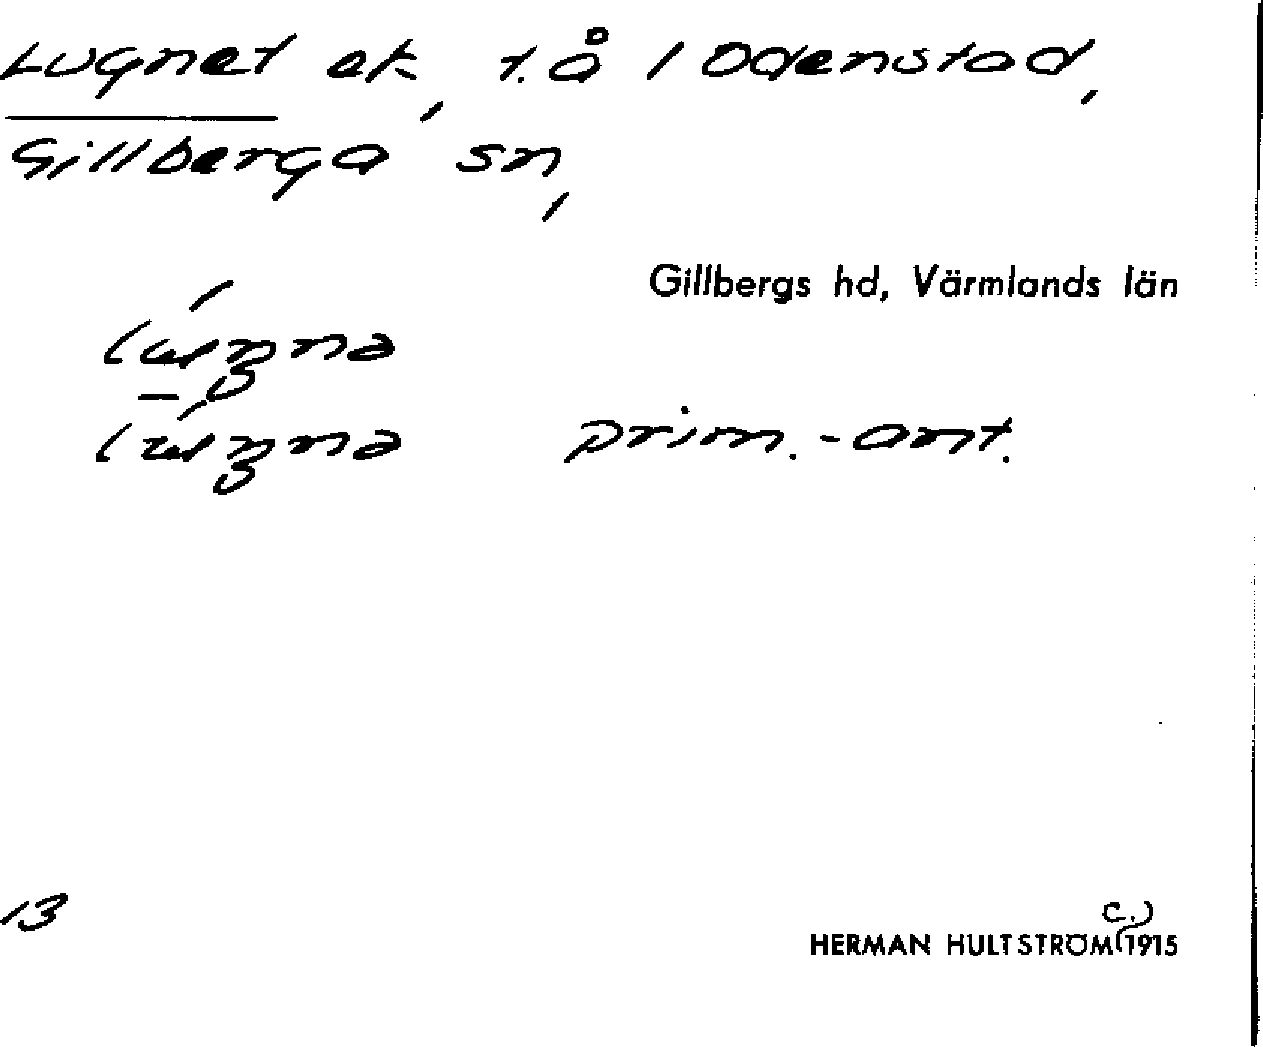 Lugnet ek, t. å 1 Odenstad,
Gillberga sn,
Gillbergs hd, Värmlands län
prim.-ant.
13
c.)
HERMAN HULTSTRÖM (1915